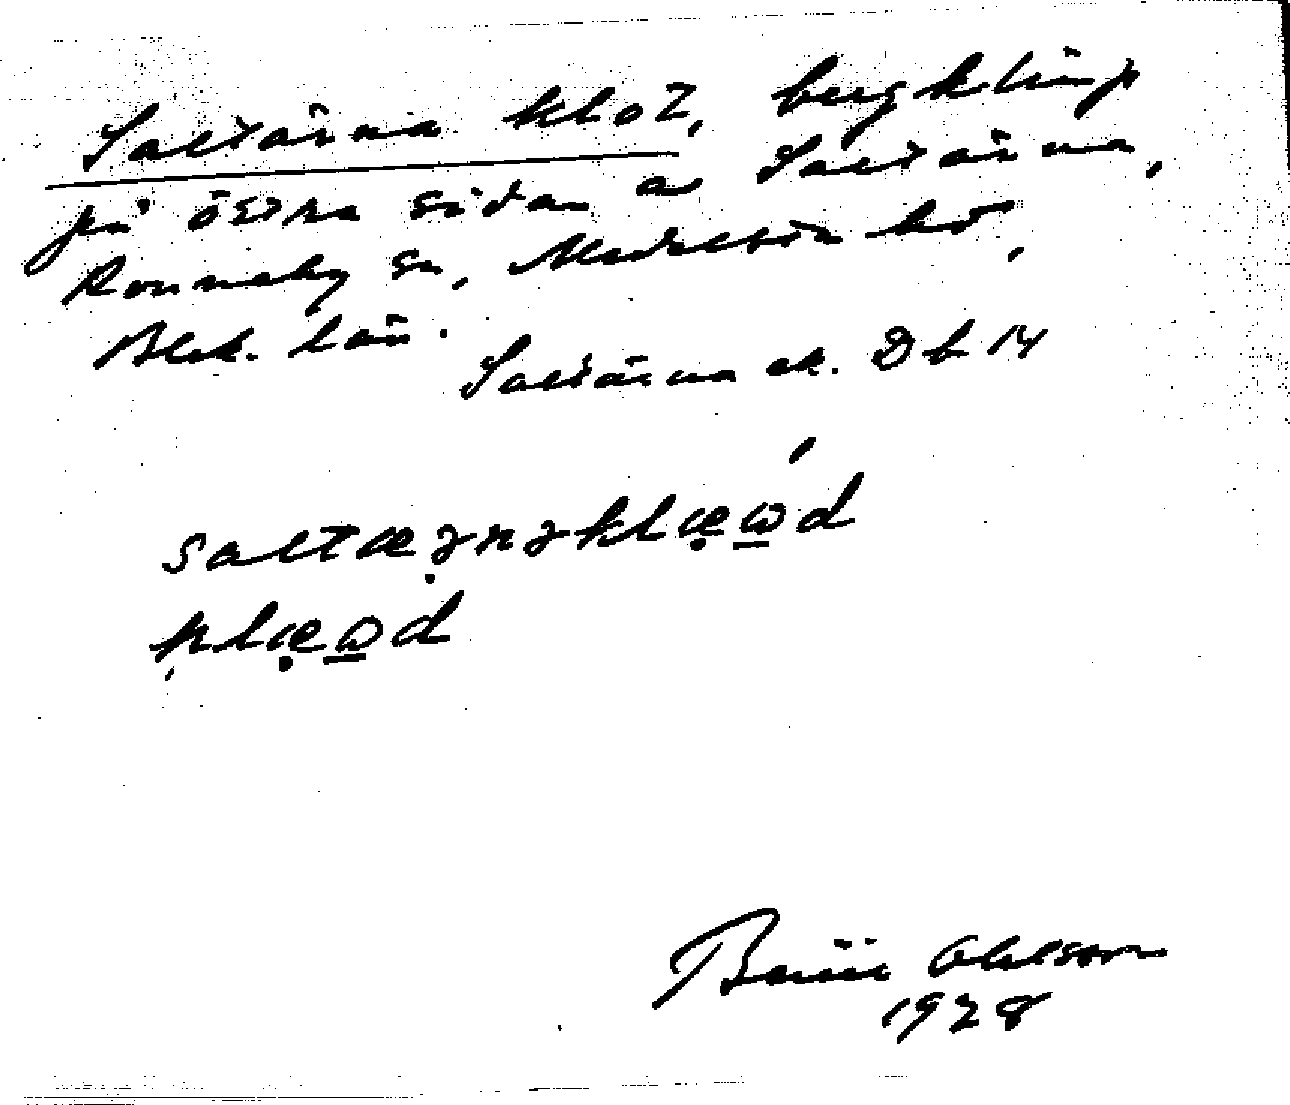 Saltärna klot, bergklimp
på östra sidan av Saltärna,
Ronneby sn, Medelsta hd,
Blek. län.
Saltärna ek. Db 14
saltæɂnəklæωd
plæωd
Ohlsson
1928